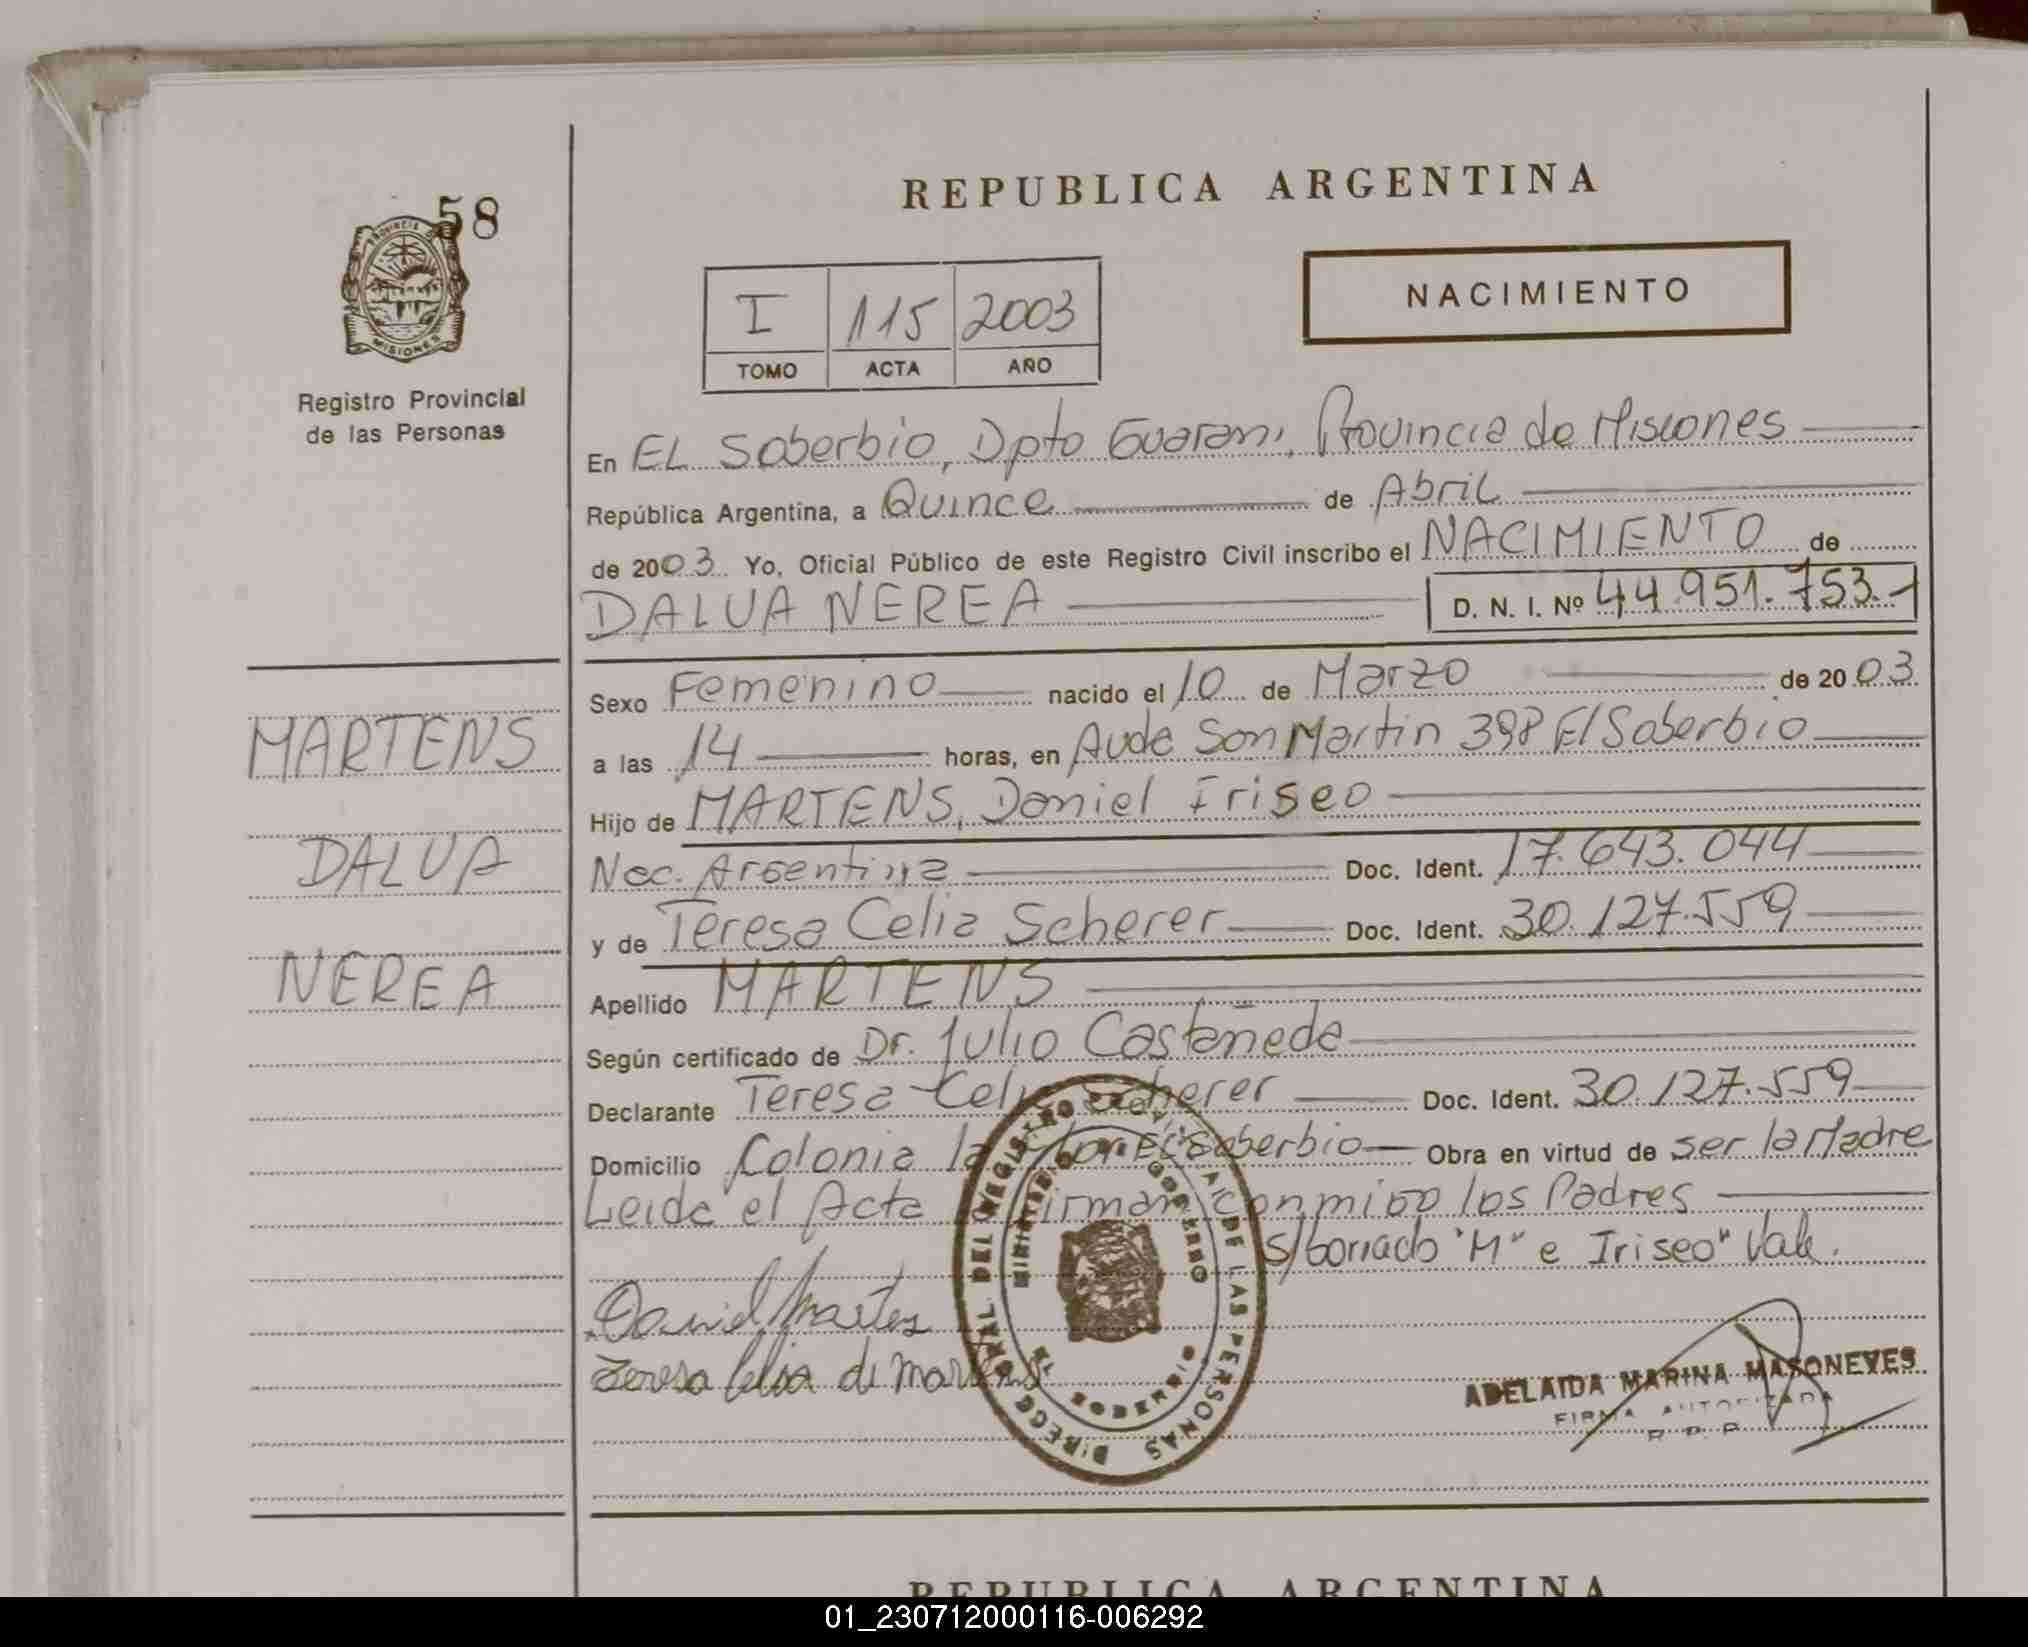 REPUBLICA ARGENTINA
58
PROVINCIA DE
MISIONES
Registro Provincial
de las Personas
I 115 2003
TOMO ACTA AÑO
NACIMIENTO
En EL Soberbio, Dpto Guarani, Provincia de Misiones
República Argentina, a Quince de Abril
de 2003 Yo, Oficial Público de este Registro Civil inscribo el NACIMIENTO de
DALUA NEREA D. N. I. Nº 44.951.753.-
Sexo Femenino nacido el 10 de Marzo de 2003
a las 14 horas, en Avda San Martin 398 El Soberbio
Hijo de MARTENS, Daniel Iriseo
Nac. Argentina Doc. Ident. 17.643.044
y de Teresa Celia Scherer Doc. Ident. 30.127.559
Apellido MARTENS
Según certificado de Dr. Julio Castañeda
Declarante Teresa Celia Scherer Doc. Ident. 30.127.559
Domicilio Colonia la Flor El Soberbio Obra en virtud de ser la Madre
Leida el Acta firman conmigo los Padres
s/borrado "M" e Iriseo" Vale.
MARTENS
DALUA
NEREA
Daniel Martens
Teresa Celia de Martens
DEL REGISTRO DE LAS PERSONAS
MINISTERIO DE GOBIERNO
EL SOBERBIO
ADELAIDA MARINA MASONEVES
FIRMA AUTORIZADA
R. P. P.
REPUBLICA ARGENTINA
01_230712000116-006292